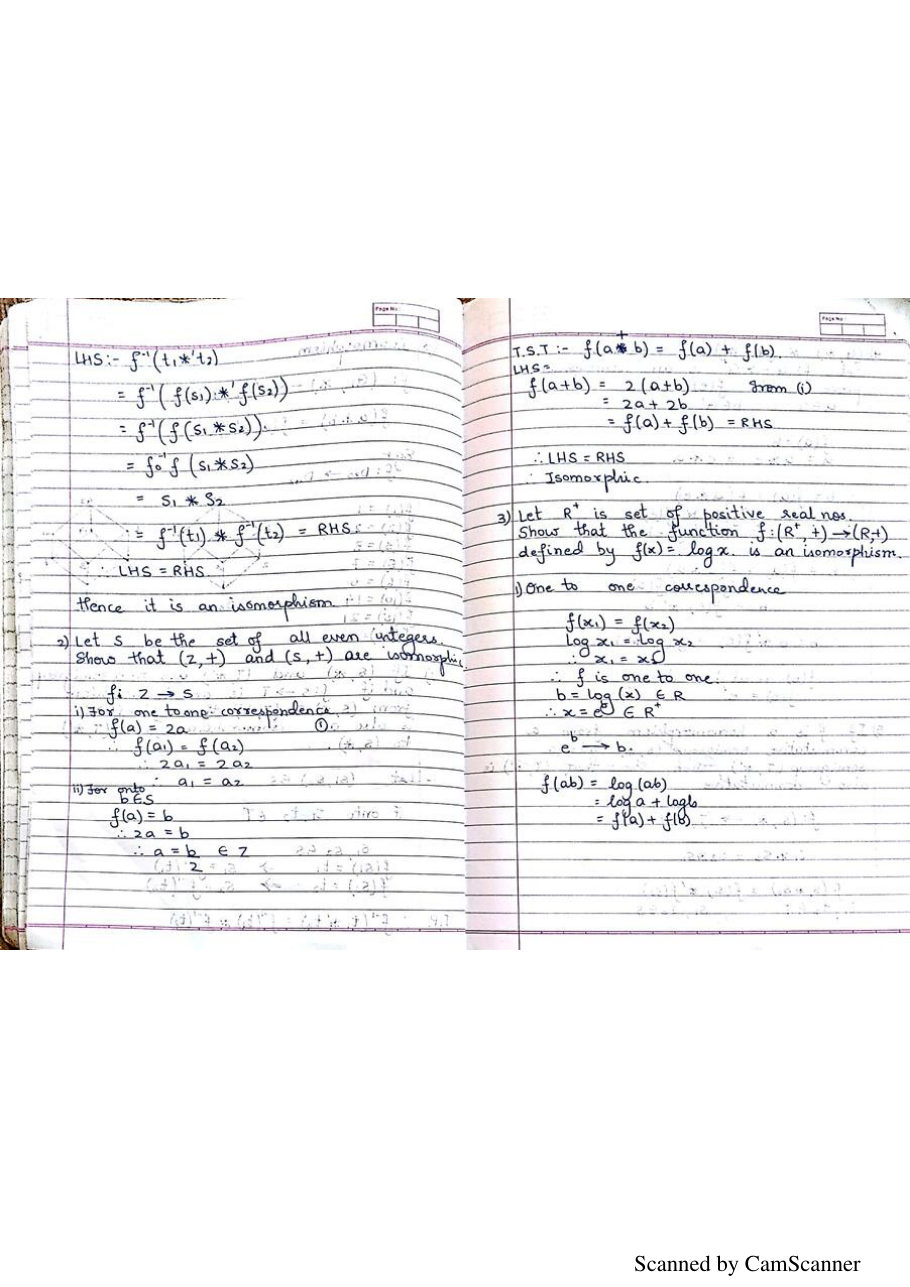 Page No.
LHS :- f⁻¹(t₁ *' t₂)
= f⁻¹( f(s₁) *' f(s₂))
= f⁻¹(f(s₁ * s₂))
= f o⁻¹ f (s₁ * s₂)
= s₁ * s₂
= f⁻¹(t₁) * f⁻¹(t₂) = RHS
∴ LHS = RHS
Hence it is an isomorphism
2) Let S be the set of all even integers.
Show that (Z,+) and (S,+) are isomorphic
f: Z → S
i) For one to one correspondence
f(a) = 2a ①
∴ f(a₁) = f(a₂)
∴ 2a₁ = 2a₂
∴ a₁ = a₂
ii) For onto
b ∈ S
f(a) = b
∴ 2a = b
∴ a = b ∈ Z
2
Page No.
T.S.T :- f(a + b) = f(a) + f(b)
LHS =
f(a+b) = 2(a+b) from (i)
= 2a + 2b
= f(a) + f(b) = RHS
∴ LHS = RHS
∴ Isomorphic.
3) Let R⁺ is set of positive real nos.
Show that the function f:(R⁺, +) → (R,+)
defined by f(x) = log x. is an isomorphism.
i) One to one correspondence
f(x₁) = f(x₂)
log x₁ = log x₂
∴ x₁ = x₂
∴ f is one to one.
b = log (x) ∈ R
∴ x = eᵇ ∈ R⁺
eᵇ → b.
f(ab) = log (ab)
= log a + log b
= f(a) + f(b)
Scanned by CamScanner